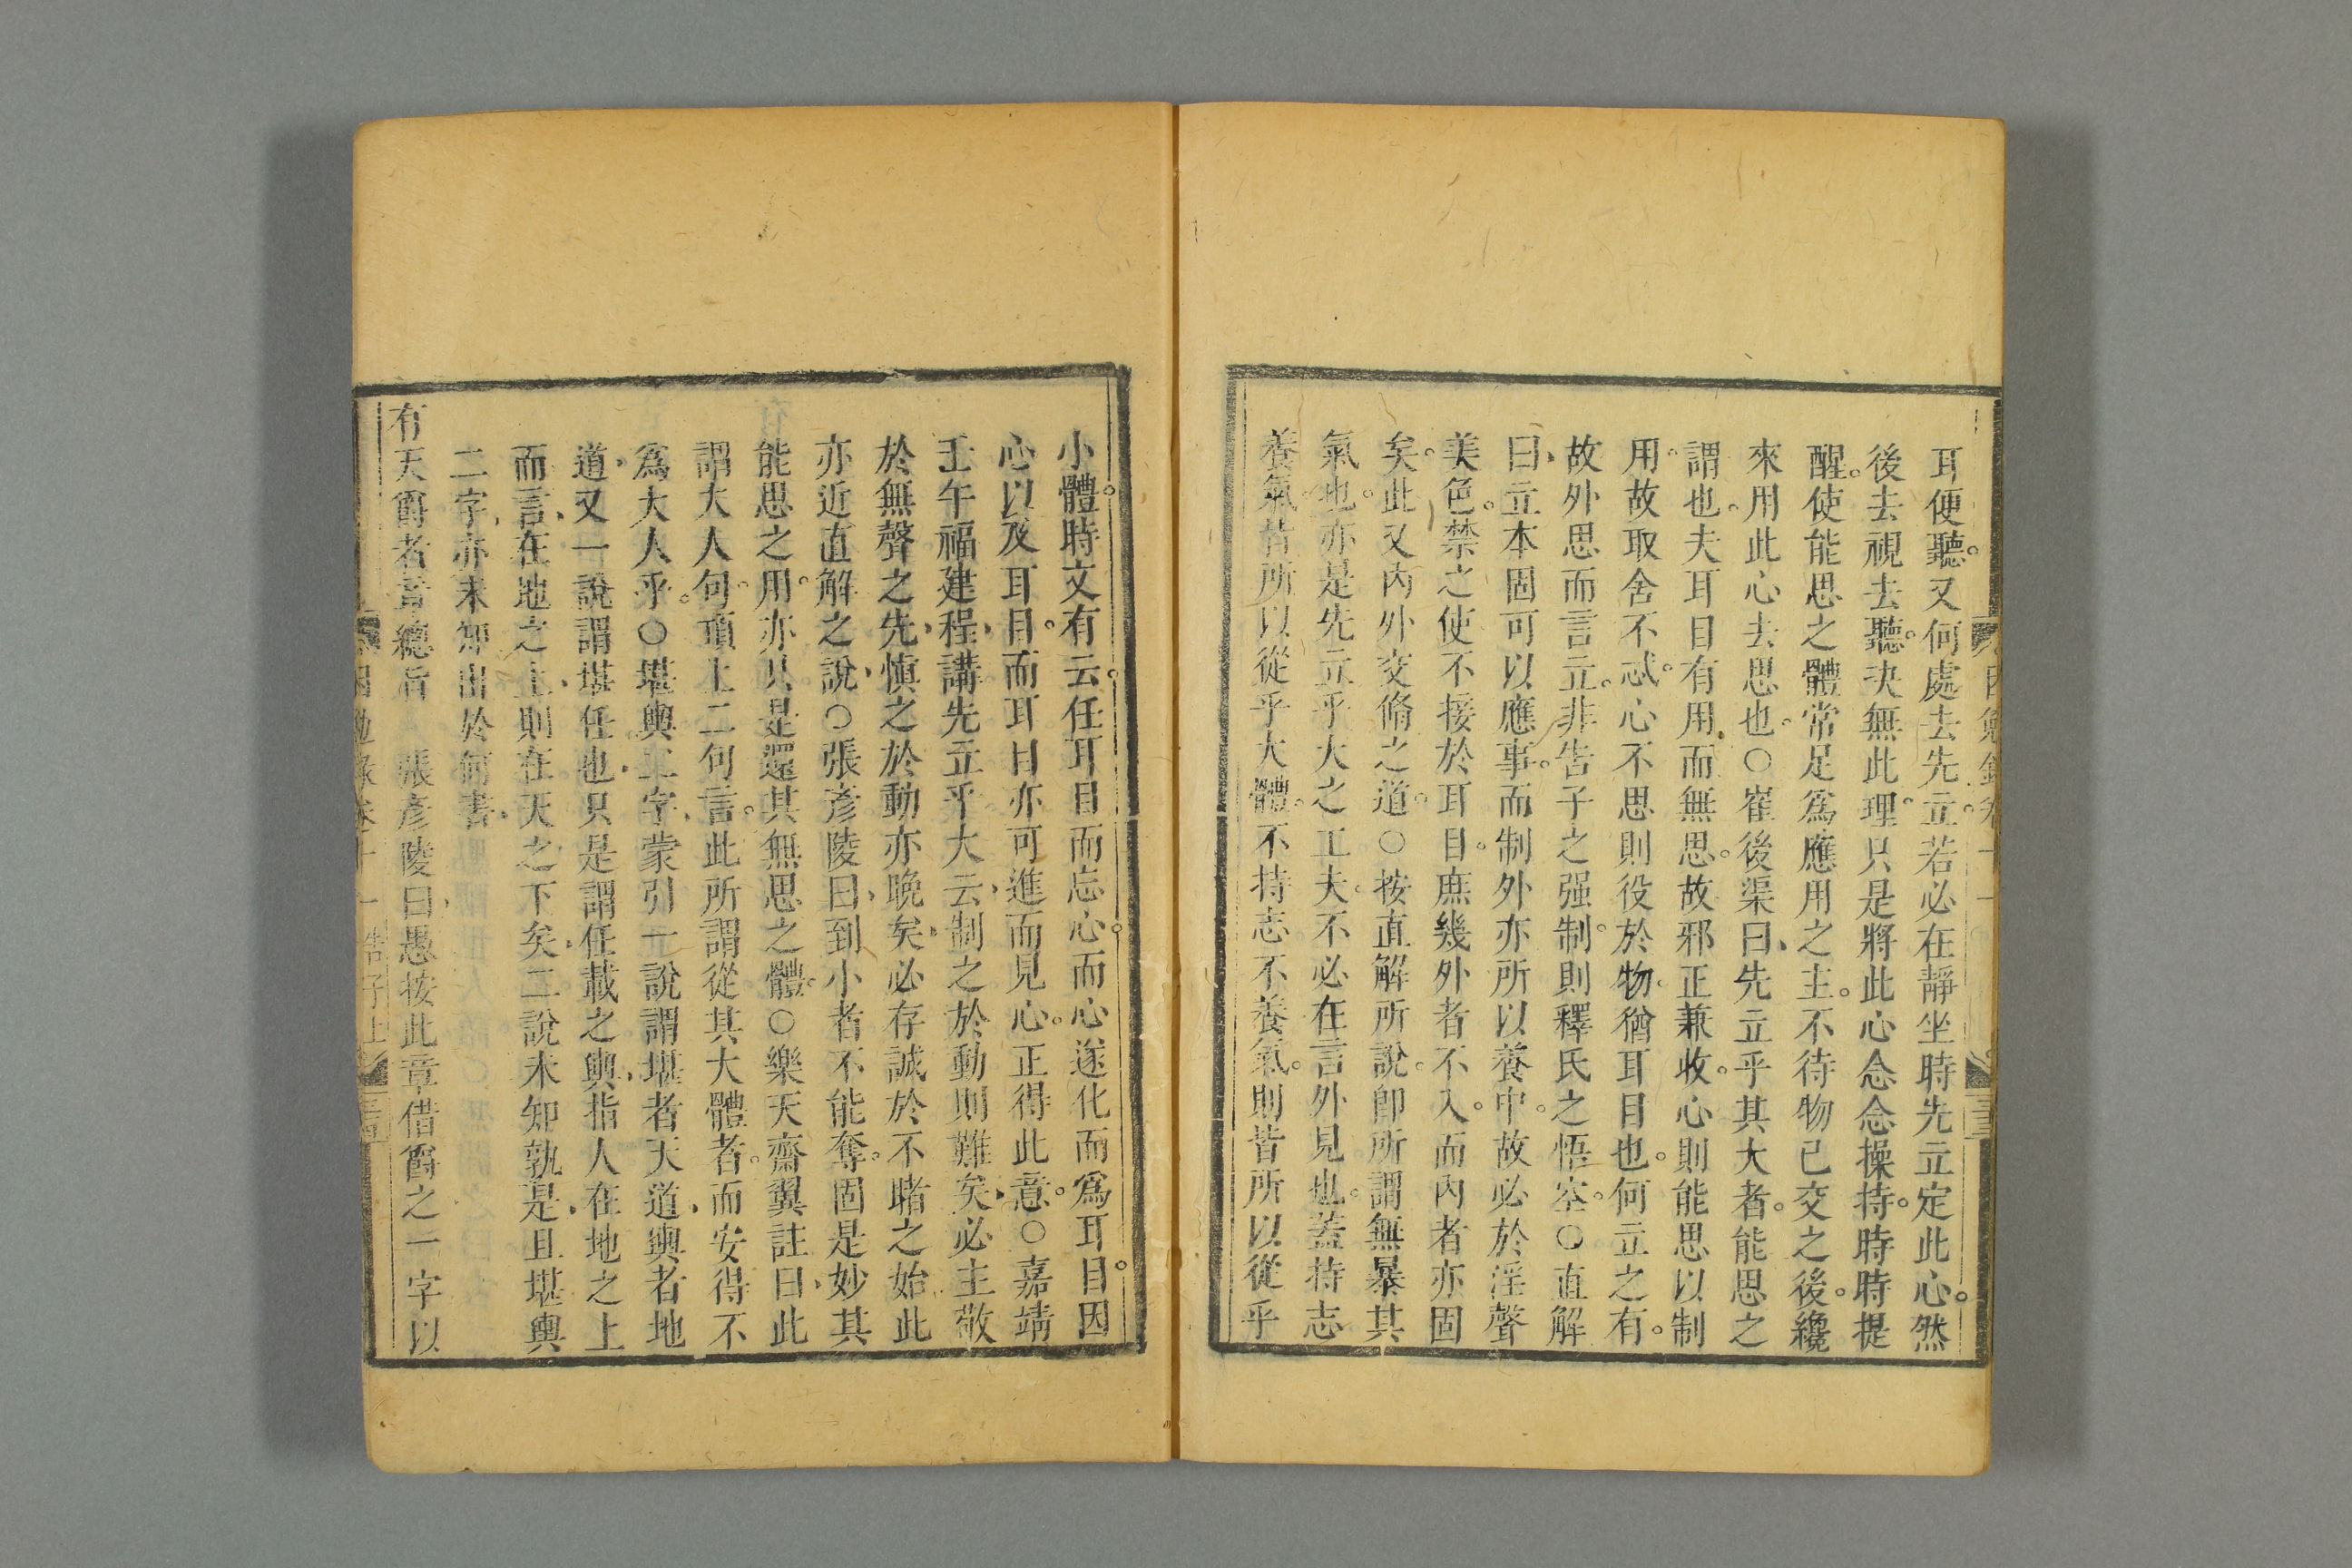 耳便聽。又何處去先立。若必在靜坐時先立定此心。然
後去視去聽。決無此理。只是將此心念念操持。時時提
醒。使能思之體常足爲應用之主。不待物已交之後。纔
來用此心去思也。○崔後渠曰、先立乎其大者。能思之
謂也。夫耳目有用。而無思。故邪正兼收。心則能思以制
用。故取舍不忒。心不思則役於物。猶耳目也。何立之有。
故外思而言立。非告子之强制。則釋氏之悟空。○直解
曰、立本固可以應事。而制外亦所以養中。故必於淫聲
美色。禁之使不接於耳目。庶幾外者不入。而內者亦固
矣。此又內外交脩之道。○按直解所說。卽所謂無暴其
氣也。亦是先立乎大之工夫。不必在言外見也。蓋持志
養氣。皆所以從乎大體。不持志不養氣。則皆所以從乎
小體。時文有云。任耳目而忘心。而心遂化而爲耳目。因
心以及耳目。而耳目亦可進而見心。正得此意。○嘉靖
壬午福建程、講先立乎大云、制之於動則難矣、必主敬
於無聲之先、慎之於動亦晚矣、必存誠於不睹之始、此
亦近直解之說、○張彥陵曰、到小者不能奪。固是妙其
能思之用。亦只是還其無思之體。○樂天齋翼註曰、此
謂大人句。頂上二句言。此所謂從其大體者。而安得不
爲大人乎。○堪輿二字、蒙引一說謂堪者天道、輿者地
道、又一說謂堪任也、只是謂任載之輿、指人在地之上
而言、在地之上、則在天之下矣、二說未知孰是、且堪輿
二字、亦未知出於何書、
有天爵者章總旨　張彥陵曰、愚按此章借爵之一字以
告子上